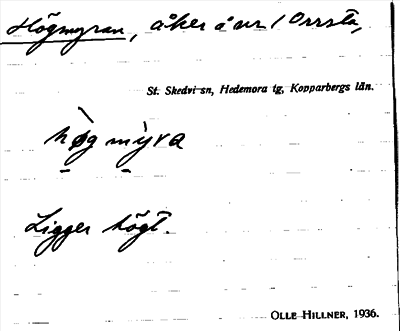 Högmyran, åker å nr 1 Orrsta,
St. Skedvi sn, Hedemora tg, Kopparbergs län.
hög mỳra
Ligger högt.
OLLE HILLNER, 1936.